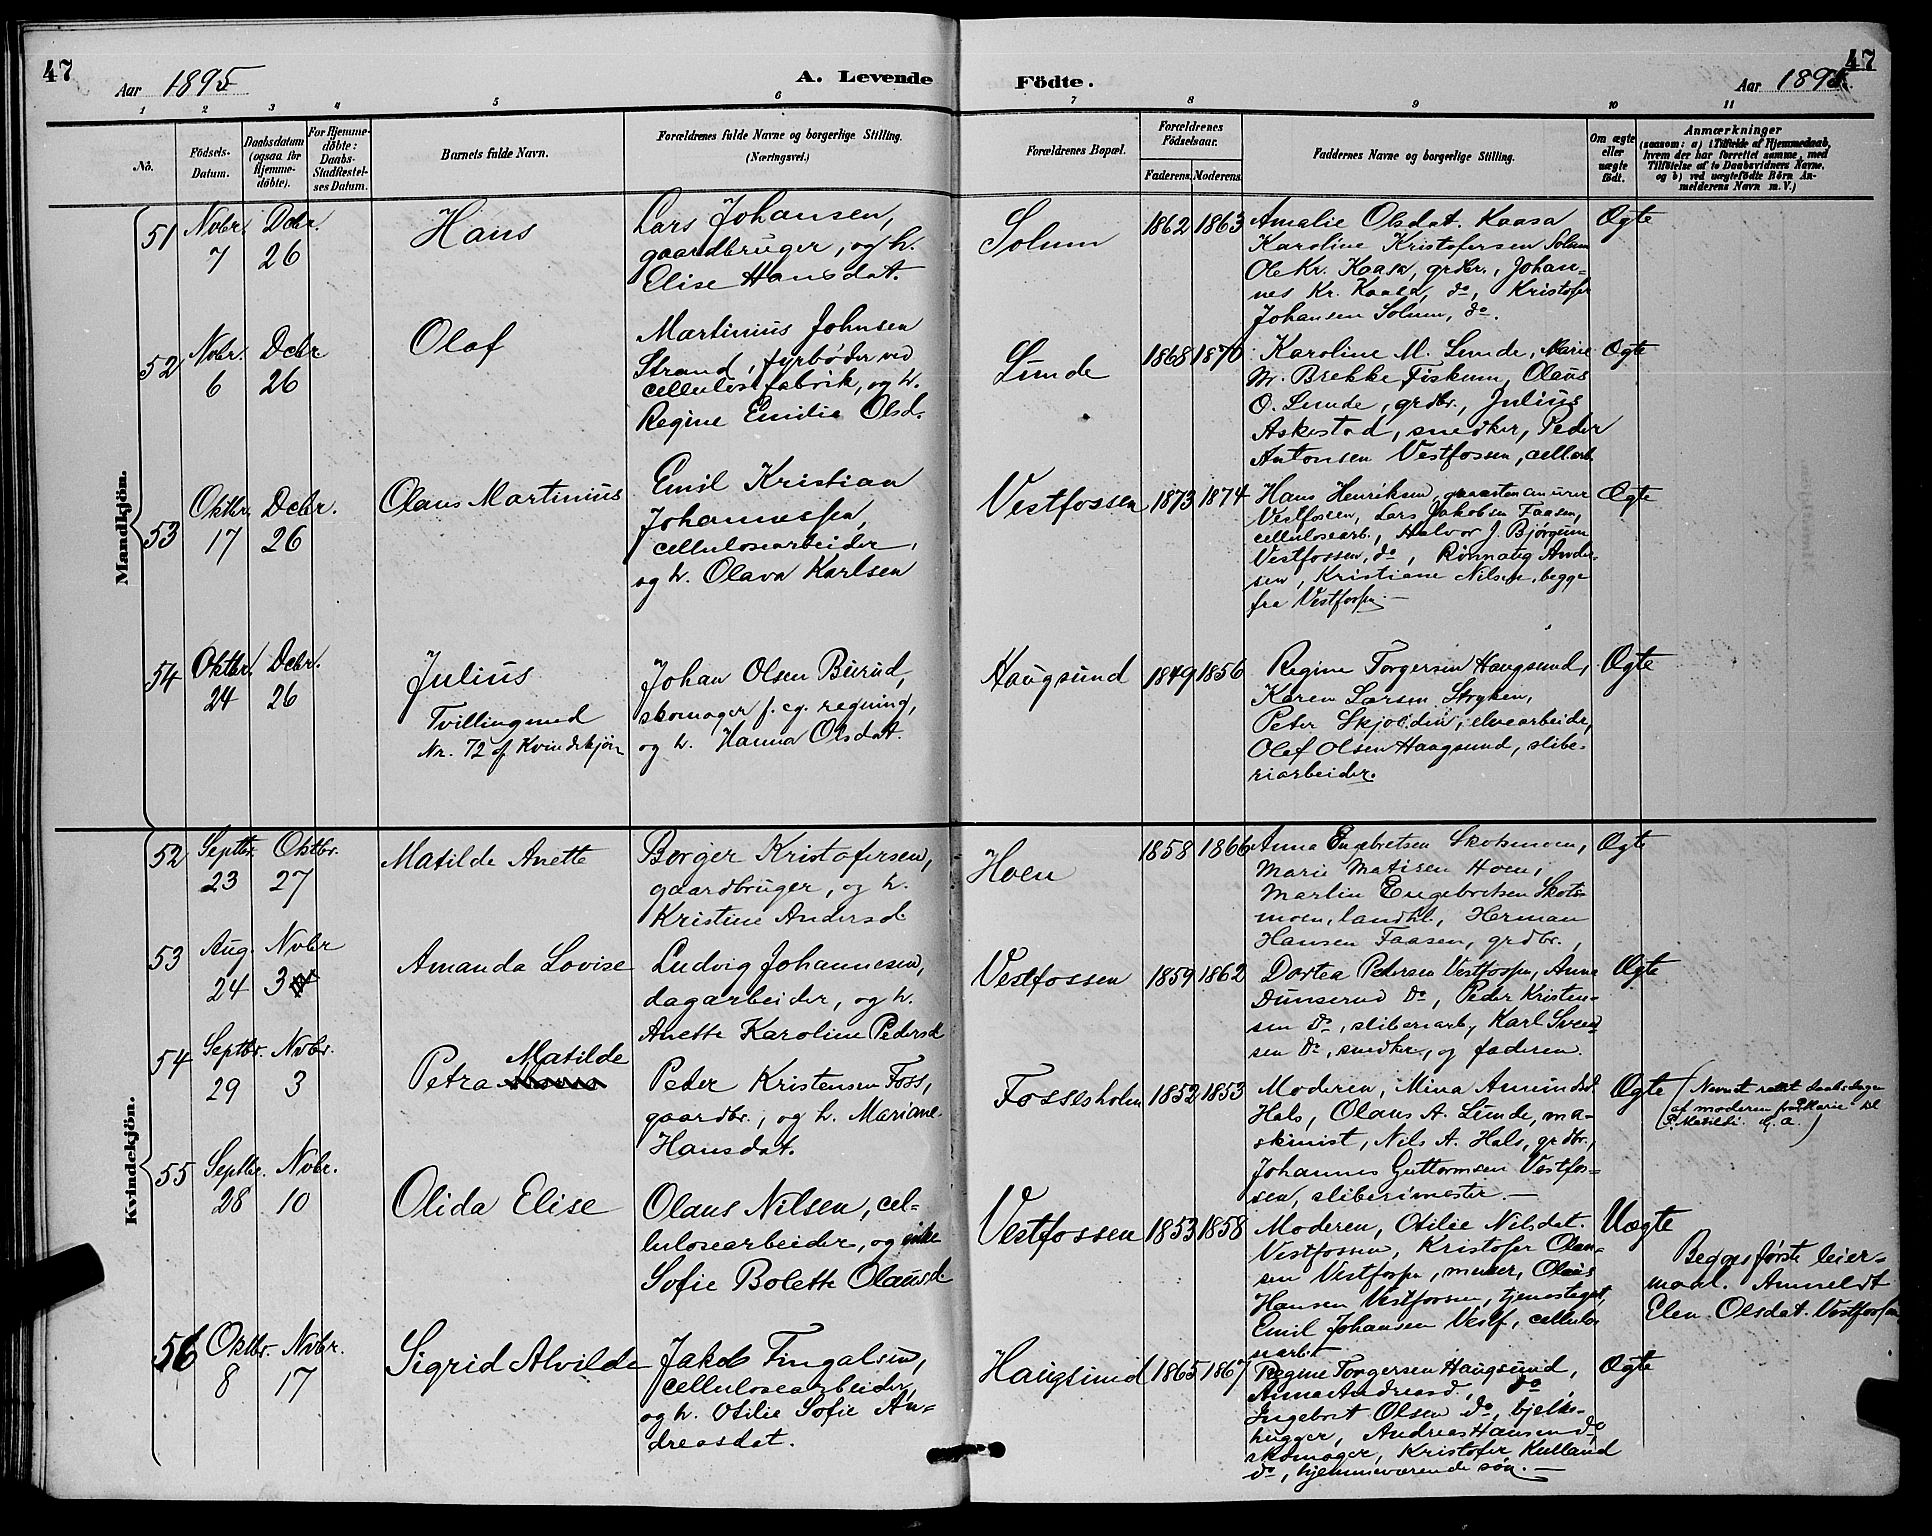 47
Aar 1895
A. Levende
Födte.
Aar 1895.
47
1 2 3 4 5 6 7 8 9 10 11
No.
Födsels-
Datum.
Daabsdatum
(ogsaa for
Hjemme-
döbte).
For Hjemme-
döbte:
Daabs-
Stadfæstel-
ses Datum.
Barnets fulde Navn.
Forældrenes fulde Navne og borgerlige Stilling.
(Næringsvei.)
Forældrenes Bopæl.
Forældrenes
Födselsaar.
Faderens. Moderens.
Faddernes Navne og borgerlige Stilling.
Om ægte
eller
uægte
födt.
Anmærkninger
(saasom: a) i Tilfælde af Hjemmedaab,
hvem der har forrettet samme, med
Tilföielse af to Daabsvidners Navne,
og b) ved uægtefödte Börn An-
melderens Navn m. V.)
Mandkjön.
51 Novbr. 7 Decbr. 26
Hans
Lars Johansen,
gaardbruger, og h.
Elise Hansdat.
Solum
1862 1863
Amalie Olsdat. Kaasa
Karoline Kristofersen Solum
Ole Kr. Kaasa, grdbr., Johan-
nes Kr. Kaasa, do, Kristofer
Johansen Solum, do.
Ægte
52 Novbr. 6 Decbr 26
Olaf
Martinius Johnsen
Strand, fyrbøder ved
cellulosefabrik, og h.
Regine Emilie Olsd.
Lunde
1868 1870
Karoline M. Lunde, Marie
Brekke Fiskum, Olaus
O. Lunde, grdbr., Julius
Askestad, snedker, Peder
Antonsen Vestfossen, cell.arb.
Ægte
53 Oktbr. 17 Decbr. 26
Olaus Martinius
Emil Kristian
Johannessen,
cellulosearbeider,
og h. Olava Karlsen
Vestfossen
1873 1874
Hans Henriksen,
Vestfossen, Lars Jakobsen Faasen,
cellulosearb., Halvor J. Bjørgum
Vestfossen, do, Ander-
sen, Kristiane Nilsen, begge
fra Vestfossen.—
Ægte
54 Oktbr. 24 Decbr. 26
Julius
Tvilling med
Nr. 72 af Kvindekjøn
Johan Olsen Burud,
skomager f. eg. regning,
og h. Hanna Olsdat.
Haugsund
1849 1856
Regine Torgersen Haugsund,
Karen Larsen Stryken,
Peter Skjoldin, elvearbeider,
Olef Olsen Haugsund, slibe-
riarbeider.
Ægte
Kvindekjön.
52 Septbr. 23 Oktbr. 27
Matilde Anette
Borger Kristofersen,
gaardbruger, og h.
Kristine Andersd.
Hoen
1858 1866
Anna Engebretsen Skotsmoen,
Marie Matisen Hoen,
Martin Engebretsen Skots-
moen, landhl., Herman
Hansen Faasen, grdbr.,
Ægte
53 Aug. 24 Novbr 3
Amanda Lovise
Ludvig Johannesen,
dagarbeider, og h.
Anette Karoline Pedersd
Vestfossen
1859 1862
Dortea Pedersen Vestfossen, Anna
Dunserud do, Peder Kristen-
sen do, sliberiarb., Karl Svend-
sen do, snedker, og faderen.
Ægte
54 Septbr. 29 Novbr. 3
Petra Matilde
Peder Kristensen Foss,
gaardbr., og h. Mariane
Hansdat.
Fossesholm
1852 1853
Moderen, Mina Amundsd.
Hals, Olaus A. Lunde, ma-
skinist, Nils A. Hals, grdbr.,
Johannes Guttormsen Vestfos-
sen, slibermester.—
Ægte
(Navnet rettet daabsdagen
af moderen fra P. Marie til
P. Matilde. d. a.)
55 Septbr. 28 Novbr. 10
Olida Elise
Olaus Nilsen, cel-
lulosearbeider, og enke
Sofie Bolette Olausd
Vestfossen
1853 1858
Moderen, Otilie Nilsdat.
Vestfossen, Kristofer Olau-
sen Vestfossen, murer, Olaus
Hansen Vestfossen, tjenestegut,
Emil Johansen Vestf., cellulo-
searb.
Uægte
Begges første leier-
maal. Anmeldt
Elen Olsdat. Vestfossen
56 Oktbr. 8 Novbr. 17
Sigrid Alvilde
Jakob Fingalsen,
cellulosearbeider,
og h. Otilie Sofie An-
dreasdat.
Haugsund
1865 1867
Regine Torgersen Haugsund,
Anna Andreasd., do,
Ingebret Olsen do, bjelke-
hugger, Andreas Hansen do,
skomager, Kristofer Kulland
do, hjemmeværende søn.—
Ægte